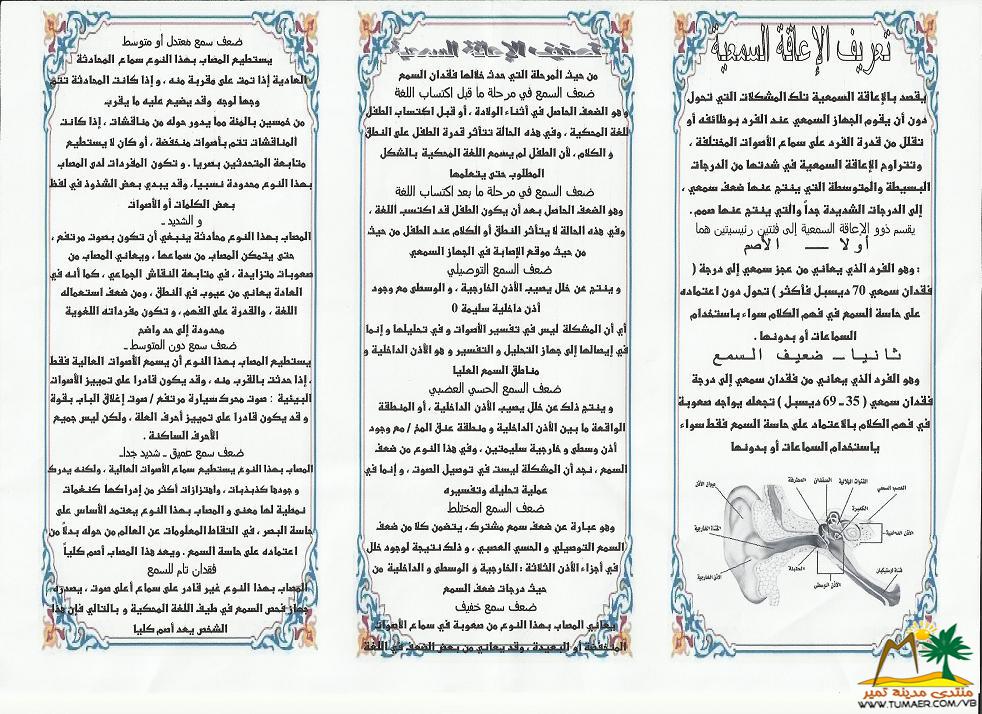 تعريف الإعاقة السمعية
يقصد بالإعاقة السمعية تلك المشكلات التي تحول
دون أن يقوم الجهاز السمعي عند الفرد بوظائفه أو
تقلل من قدرة الفرد على سماع الأصوات المختلفة ،
وتتراوح الإعاقة السمعية في شدتها من الدرجات
البسيطة والمتوسطة التي ينتج عنها ضعف سمعي ،
إلى الدرجات الشديدة جداً والتي ينتج عنها صمم .
يقسم ذوو الإعاقة السمعية إلى فئتين رئيسيتين هما
أولا ــ الأصم
: وهو الفرد الذي يعاني من عجز سمعي إلى درجة (
فقدان سمعي 70 ديسبل فأكثر ) تحول دون اعتماده
على حاسة السمع في فهم الكلام سواء باستخدام
السماعات أو بدونها .
ثانيا ــ ضعيف السمع
وهو الفرد الذي يعاني من فقدان سمعي إلى درجة
فقدان سمعي ( 35 ـ 69 ديسبل ) تجعله يواجه صعوبة
في فهم الكلام بالاعتماد على حاسة السمع فقط سواء
باستخدام السماعات أو بدونها
صيوان الأذن
المطرقة
السندان
القنوات الهلالية
العصب السمعي
القوقعة
القناة الخارجية
الأذن الداخلية
الأذن الخارجية
الطبلة
الأذن الوسطى
قناة أوستيكيان
من حيث المرحلة التي حدث خلالها فقدان السمع
ضعف السمع في مرحلة ما قبل اكتساب اللغة
وهو الضعف الحاصل في أثناء الولادة ، أو قبل اكتساب الطفل
للغة المحكية ، وفي هذه الحالة تتأثر قدرة الطفل على النطق
و الكلام ، لأن الطفل لم يسمع اللغة المحكية بالشكل
المطلوب حتى يتعلمها
ضعف السمع في مرحلة ما بعد اكتساب اللغة
وهو الضعف الحاصل بعد أن يكون الطفل قد اكتسب اللغة ،
وفي هذه الحالة لا يتأثر النطق أو الكلام عند الطفل من حيث
من حيث موقع الإصابة في الجهاز السمعي
ضعف السمع التوصيلي
و ينتج عن خلل يصيب الأذن الخارجية ، و الوسطى مع وجود
أذن داخلية سليمة 0
أي أن المشكلة ليس في تفسير الأصوات و في تحليلها و إنما
في إيصالها إلى جهاز التحليل و التفسير و هو الأذن الداخلية و
مناطق السمع العليا
ضعف السمع الحسي العصبي
و ينتج ذلك عن خلل يصيب الأذن الداخلية ، أو المنطقة
الواقعة ما بين الأذن الداخلية و منطقة عنق المخ / مع وجود
أذن وسطى و خارجية سليمتين ، وفي هذا النوع من ضعف
السمع ، نجد أن المشكلة ليست في توصيل الصوت ، و إنما في
عملية تحليله وتفسيره
ضعف السمع المختلط
وهو عبارة عن ضعف سمع مشترك، يتضمن كلا من ضعف
السمع التوصيلي و الحسي العصبي ، و ذلك نتيجة لوجود خلل
في أجزاء الأذن الثلاثة : الخارجية و الوسطى و الداخلية من
حيث درجات ضعف السمع
ضعف سمع خفيف
يعاني المصاب بهذا النوع من صعوبة في سماع الأصوات
المنخفضة أو البعيدة ، وقد يعاني من بعض الضعف في اللغة
ضعف سمع معتدل أو متوسط
يستطيع المصاب بهذا النوع سماع المحادثة
العادية إذا تمت على مقربة منه ، و إذا كانت المحادثة تتم
وجها لوجه وقد يضيع عليه ما يقرب
من خمسين بالمئة مما يدور حوله من مناقشات ، إذا كانت
المناقشات تتم بأصوات منخفضة ، أو كان لا يستطيع
متابعة المتحدثين بصريا . و تكون المفردات لدى المصاب
بهذا النوع محدودة نسبيا، وقد يبدي بعض الشذوذ في لفظ
بعض الكلمات أو الأصوات
و الشديد ـ
المصاب بهذا النوع محادثة ينبغي أن تكون بصوت مرتفع ،
حتى يتمكن المصاب من سماعها ، ويعاني المصاب من
صعوبات متزايدة ، في متابعة النقاش الجماعي ، كما أنه في
العادة يعاني من عيوب في النطق ، ومن ضعف استعماله
اللغة ، والقدرة على الفهم ، و تكون مفرداته اللغوية
محدودة إلى حد واضح
ضعف سمع دون المتوسط ـ
يستطيع المصاب بهذا النوع أن يسمع الأصوات العالية فقط
، إذا حدثت بالقرب منه ، وقد يكون قادرا على تمييز الأصوات
البيئية : صوت محرك سيارة مرتفع / صوت إغلاق الباب بقوة
و قد يكون قادرا على تمييز أحرف العلة ، ولكن ليس جميع
الأحرف الساكنة .
ضعف سمع عميق ـ شديد جداـ
المصاب بهذا النوع يستطيع سماع الأصوات العالية ، ولكنه يدرك
و جودها كذبذبات ، واهتزازات أكثر من إدراكها كنغمات
نمطية لها معنى و المصاب بهذا النوع يعتمد الأساس على
حاسة البصر ، في التقاط المعلومات عن العالم من حوله بدلاً من
اعتماده على حاسة السمع . ويعد هذا المصاب أصم كلياً
فقدان تام للسمع
المصاب بهذا النوع غير قادر على سماع أعلى صوت ، يصدره
جهاز فحص السمع في طيف اللغة المحكية و بالتالي فإن هذا
الشخص يعد أصم كليا
منتدى مدينة تمير
WWW.TUMAER.COM/VB